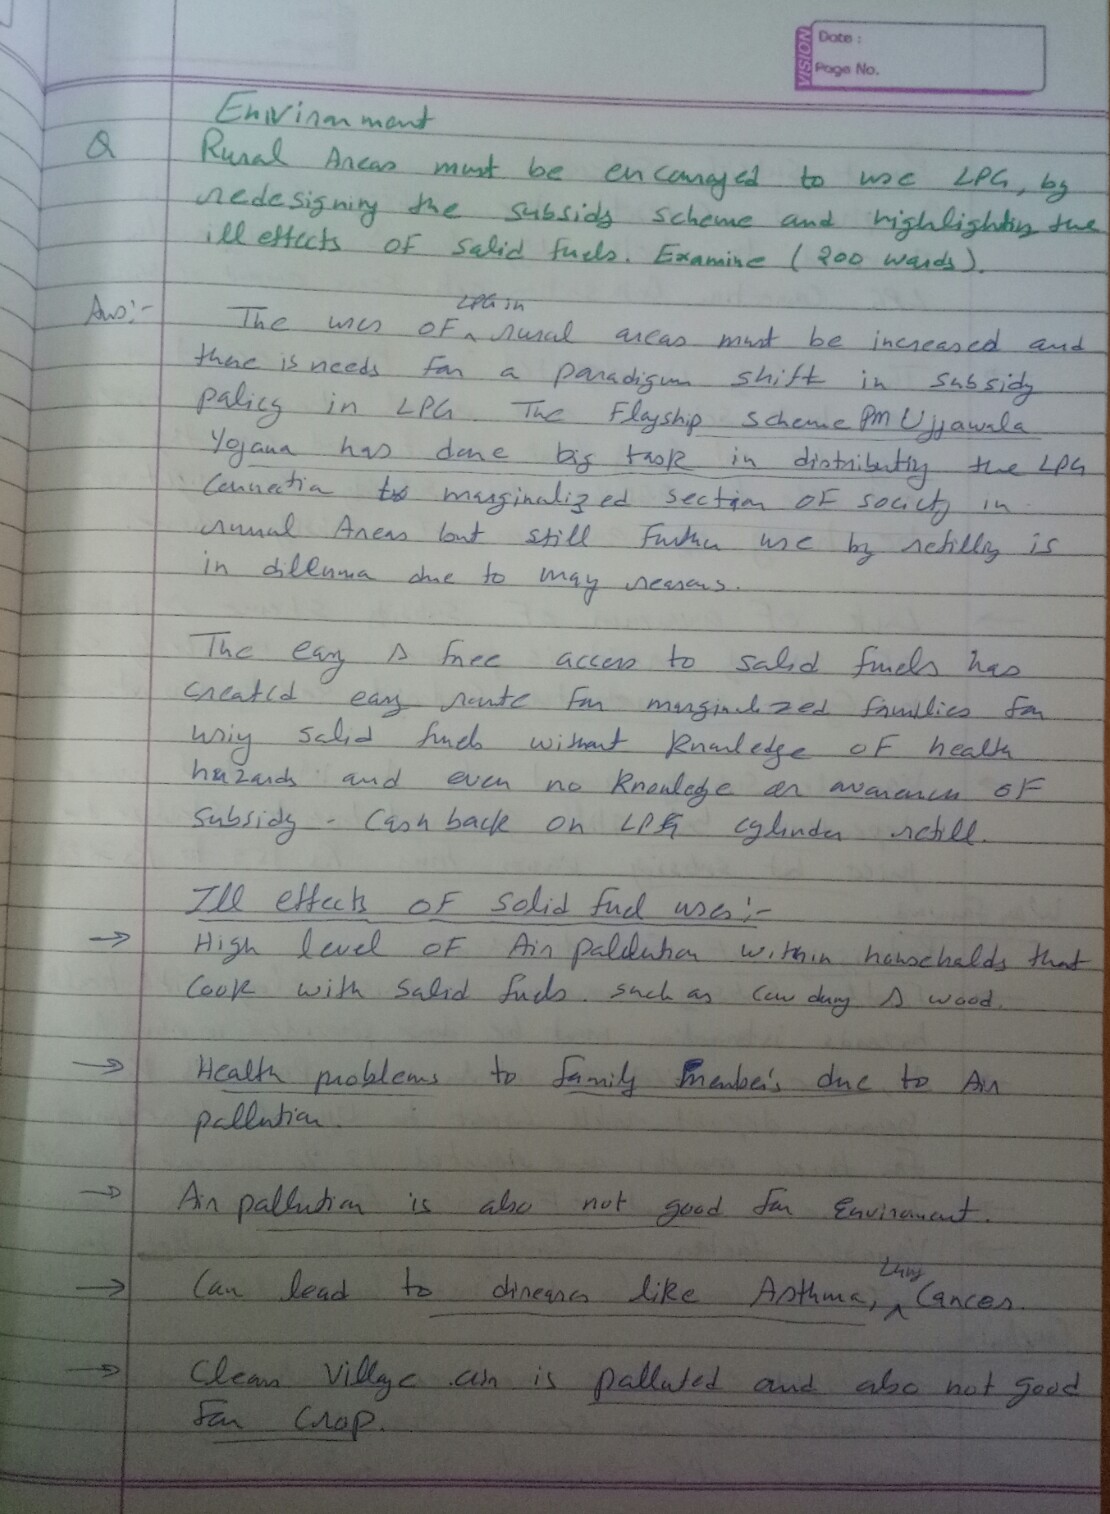 VISION
Date :
Page No.
Envirnment
Q Rural Areas must be encouraged to use LPG, by
redesigning the subsidy scheme and highlighting the
ill effects of solid fuels. Examine (200 words).
Ans:- The uses of LPG in rural areas must be increased and
there is needs for a paradigum shift in subsidy
policy in LPG. The Flagship scheme PM Ujjawala
Yojana has done big task in distributing the LPG
Connection to marginalized section of society in
rural Areas but still further use by refilling is
in dillema due to many reasons.
The easy & free access to solid fuels has
created easy route for marginalized families for
using solid fuels without knowledge of health
hazards and even no knowledge or awareness of
Subsidy - Cash back on LPG cylinder refill.
Ill effects of solid fuel uses:-
→ High level of Air pollution within households that
cook with solid fuels. such as cow dung & wood.
→ Health problems to family members due to Air
pollution.
→ Air pollution is also not good for Environment.
→ Can lead to diseases like Asthma, Lung Cancer.
→ Clean Village air is polluted and also not good
for crop.